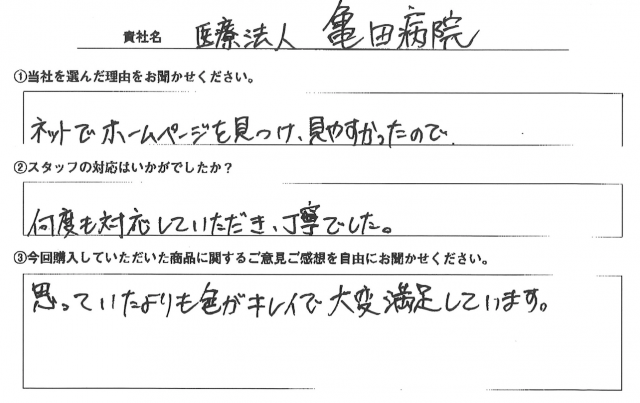 貴社名 医療法人 亀田病院
①当社を選んだ理由をお聞かせください。
ネットでホームページを見つけ、見やすかったので
②スタッフの対応はいかがでしたか？
何度も対応していただき、丁寧でした。
③今回購入していただいた商品に関するご意見ご感想を自由にお聞かせください。
思っていたよりも色がキレイで大変満足しています。